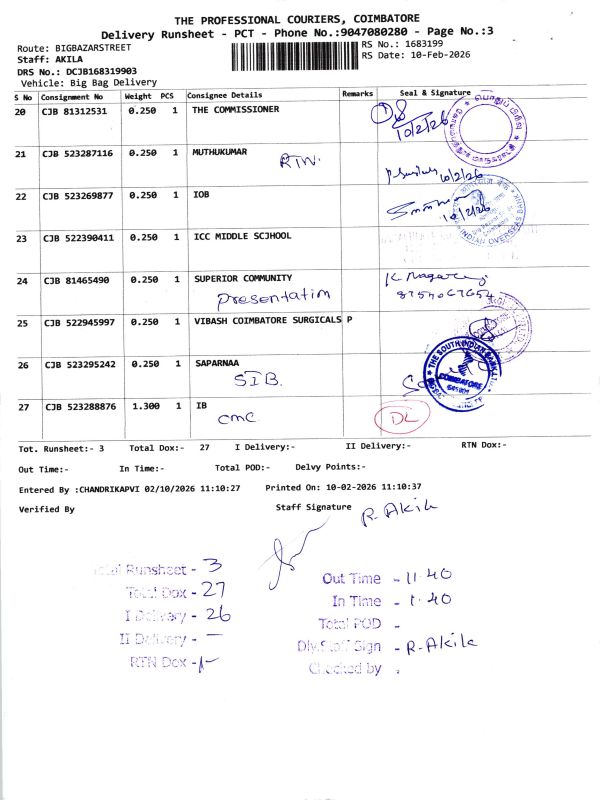 THE PROFESSIONAL COURIERS, COIMBATORE
Delivery Runsheet - PCT - Phone No.:9047080280 - Page No.:3
Route: BIGBAZARSTREET
RS No.: 1683199
Staff: AKILA
RS Date: 10-Feb-2026
DRS No.: DCJB168319903
Vehicle: Big Bag Delivery
S No Consignment No Weight PCS Consignee Details Remarks Seal & Signature
20 CJB 81312531 0.250 1 THE COMMISSIONER
10/2/26
21 CJB 523287116 0.250 1 MUTHUKUMAR
10/2/26
22 CJB 523269877 0.250 1 IOB
10/2/26
INDIAN OVERSEAS BANK
23 CJB 522390411 0.250 1 ICC MIDDLE SCJHOOL
24 CJB 81465490 0.250 1 SUPERIOR COMMUNITY
presentation
25 CJB 522945997 0.250 1 VIBASH COIMBATORE SURGICALS P
26 CJB 523295242 0.250 1 SAPARNAA
SIB.
THE SOUTH INDIAN BANK
COIMBATORE
27 CJB 523288876 1.300 1 IB
CMC
DL
Tot. Runsheet:- 3 Total Dox:- 27 I Delivery:- II Delivery:- RTN Dox:-
Out Time:- In Time:- Total POD:- Delvy Points:-
Entered By :CHANDRIKAPVI 02/10/2026 11:10:27 Printed On: 10-02-2026 11:10:37
Verified By Staff Signature R. Akila
Total Runsheet - 3
Total Dox - 27
I Delivery - 26
II Delivery - —
RTN Dox - 1
Out Time - 11.40
In Time - 1.40
Total POD -
Dlv.Staff Sign - R. Akila
Checked by